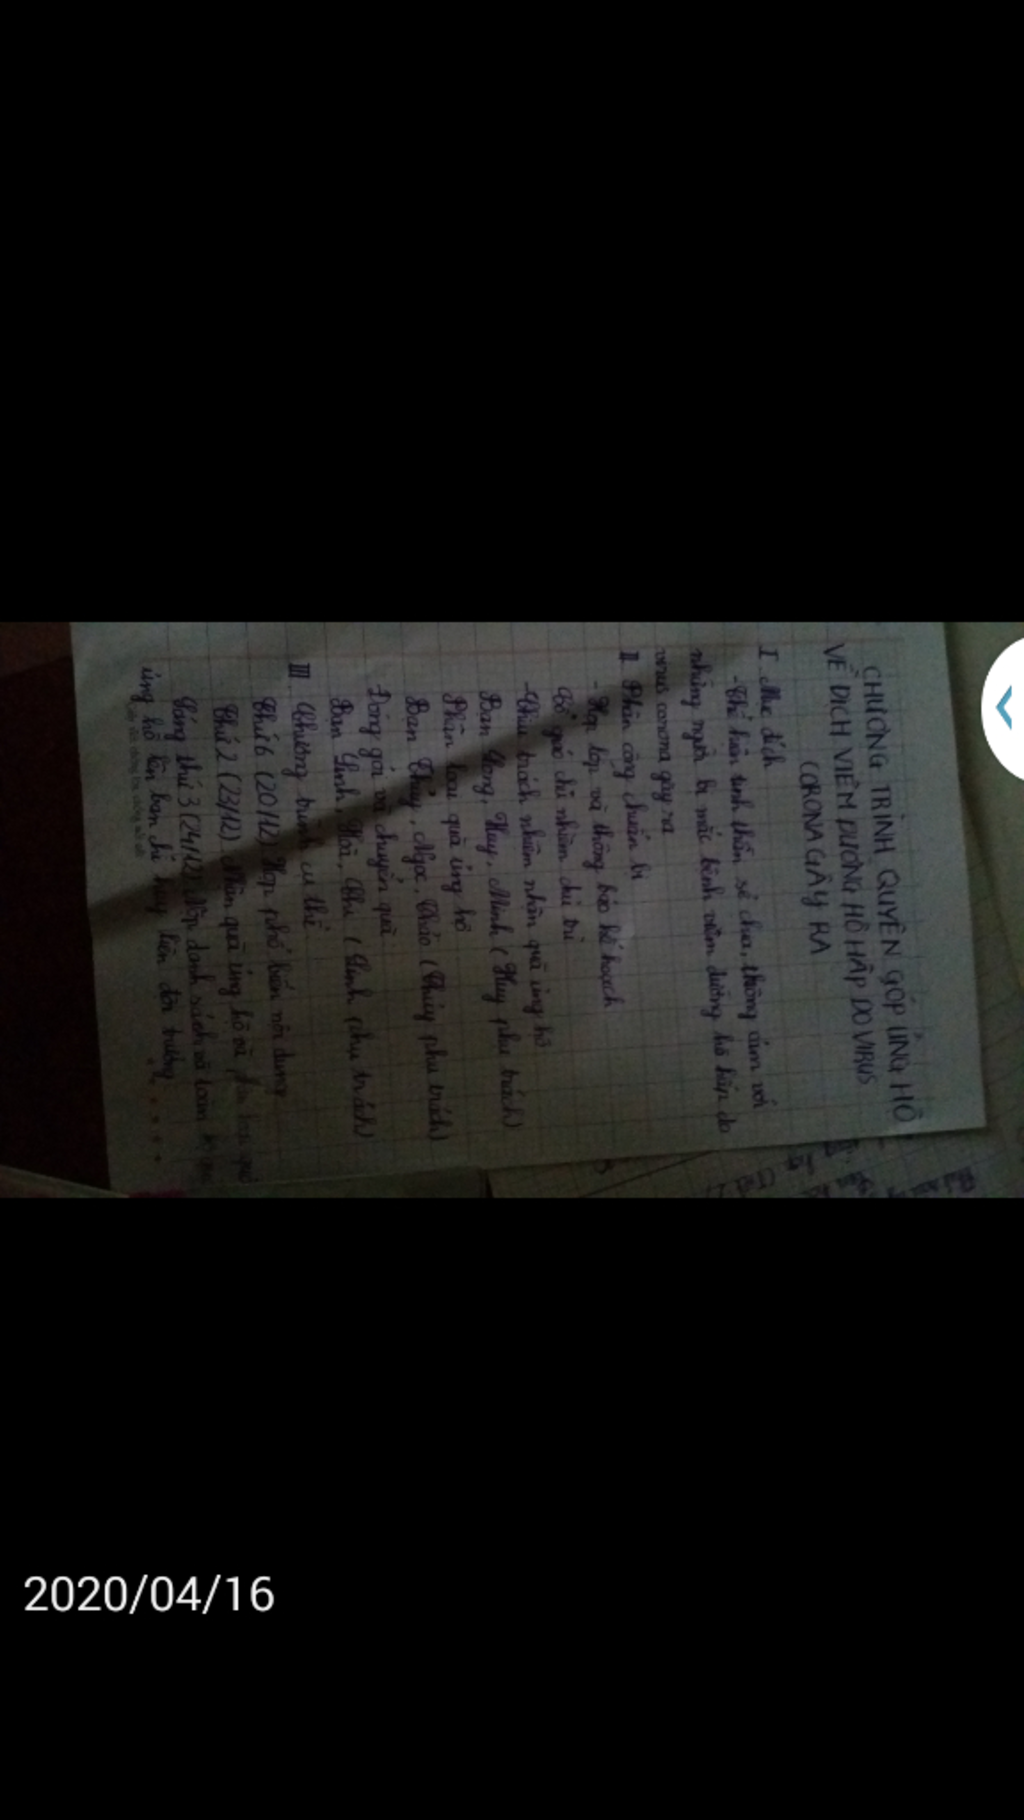 CHƯƠNG TRÌNH QUYÊN GÓP ỦNG HỘ
VỀ DỊCH VIÊM ĐƯỜNG HÔ HẤP DO VIRUS
CORONA GÂY RA
I. Mục đích
- Thể hiện tinh thần sẻ chia, thông cảm với
những người bị mắc bệnh viêm đường hô hấp do
virus corona gây ra
II. Phân công chuẩn bị
- Họp lớp và thông báo kế hoạch
Cô giáo chủ nhiệm chủ trì
- Chịu trách nhiệm nhận quà ủng hộ
Bạn Huy, Minh (Huy phụ trách)
Phân loại quà ủng hộ
Bạn Thủy, Ngọc, Thảo (Thủy phụ trách)
- Đóng gói và chuyển quà
Bạn Linh, Hoà, (Linh phụ trách)
III. Chương trình cụ thể
Thứ 6 (20/12) Họp phổ biến nội dung
Thứ 2 (23/12) Nhận quà ủng hộ và
Sáng thứ 3 (24/12) Nộp danh sách và toàn bộ
ủng hộ lên ban chỉ huy liên đội trường
2020/04/16